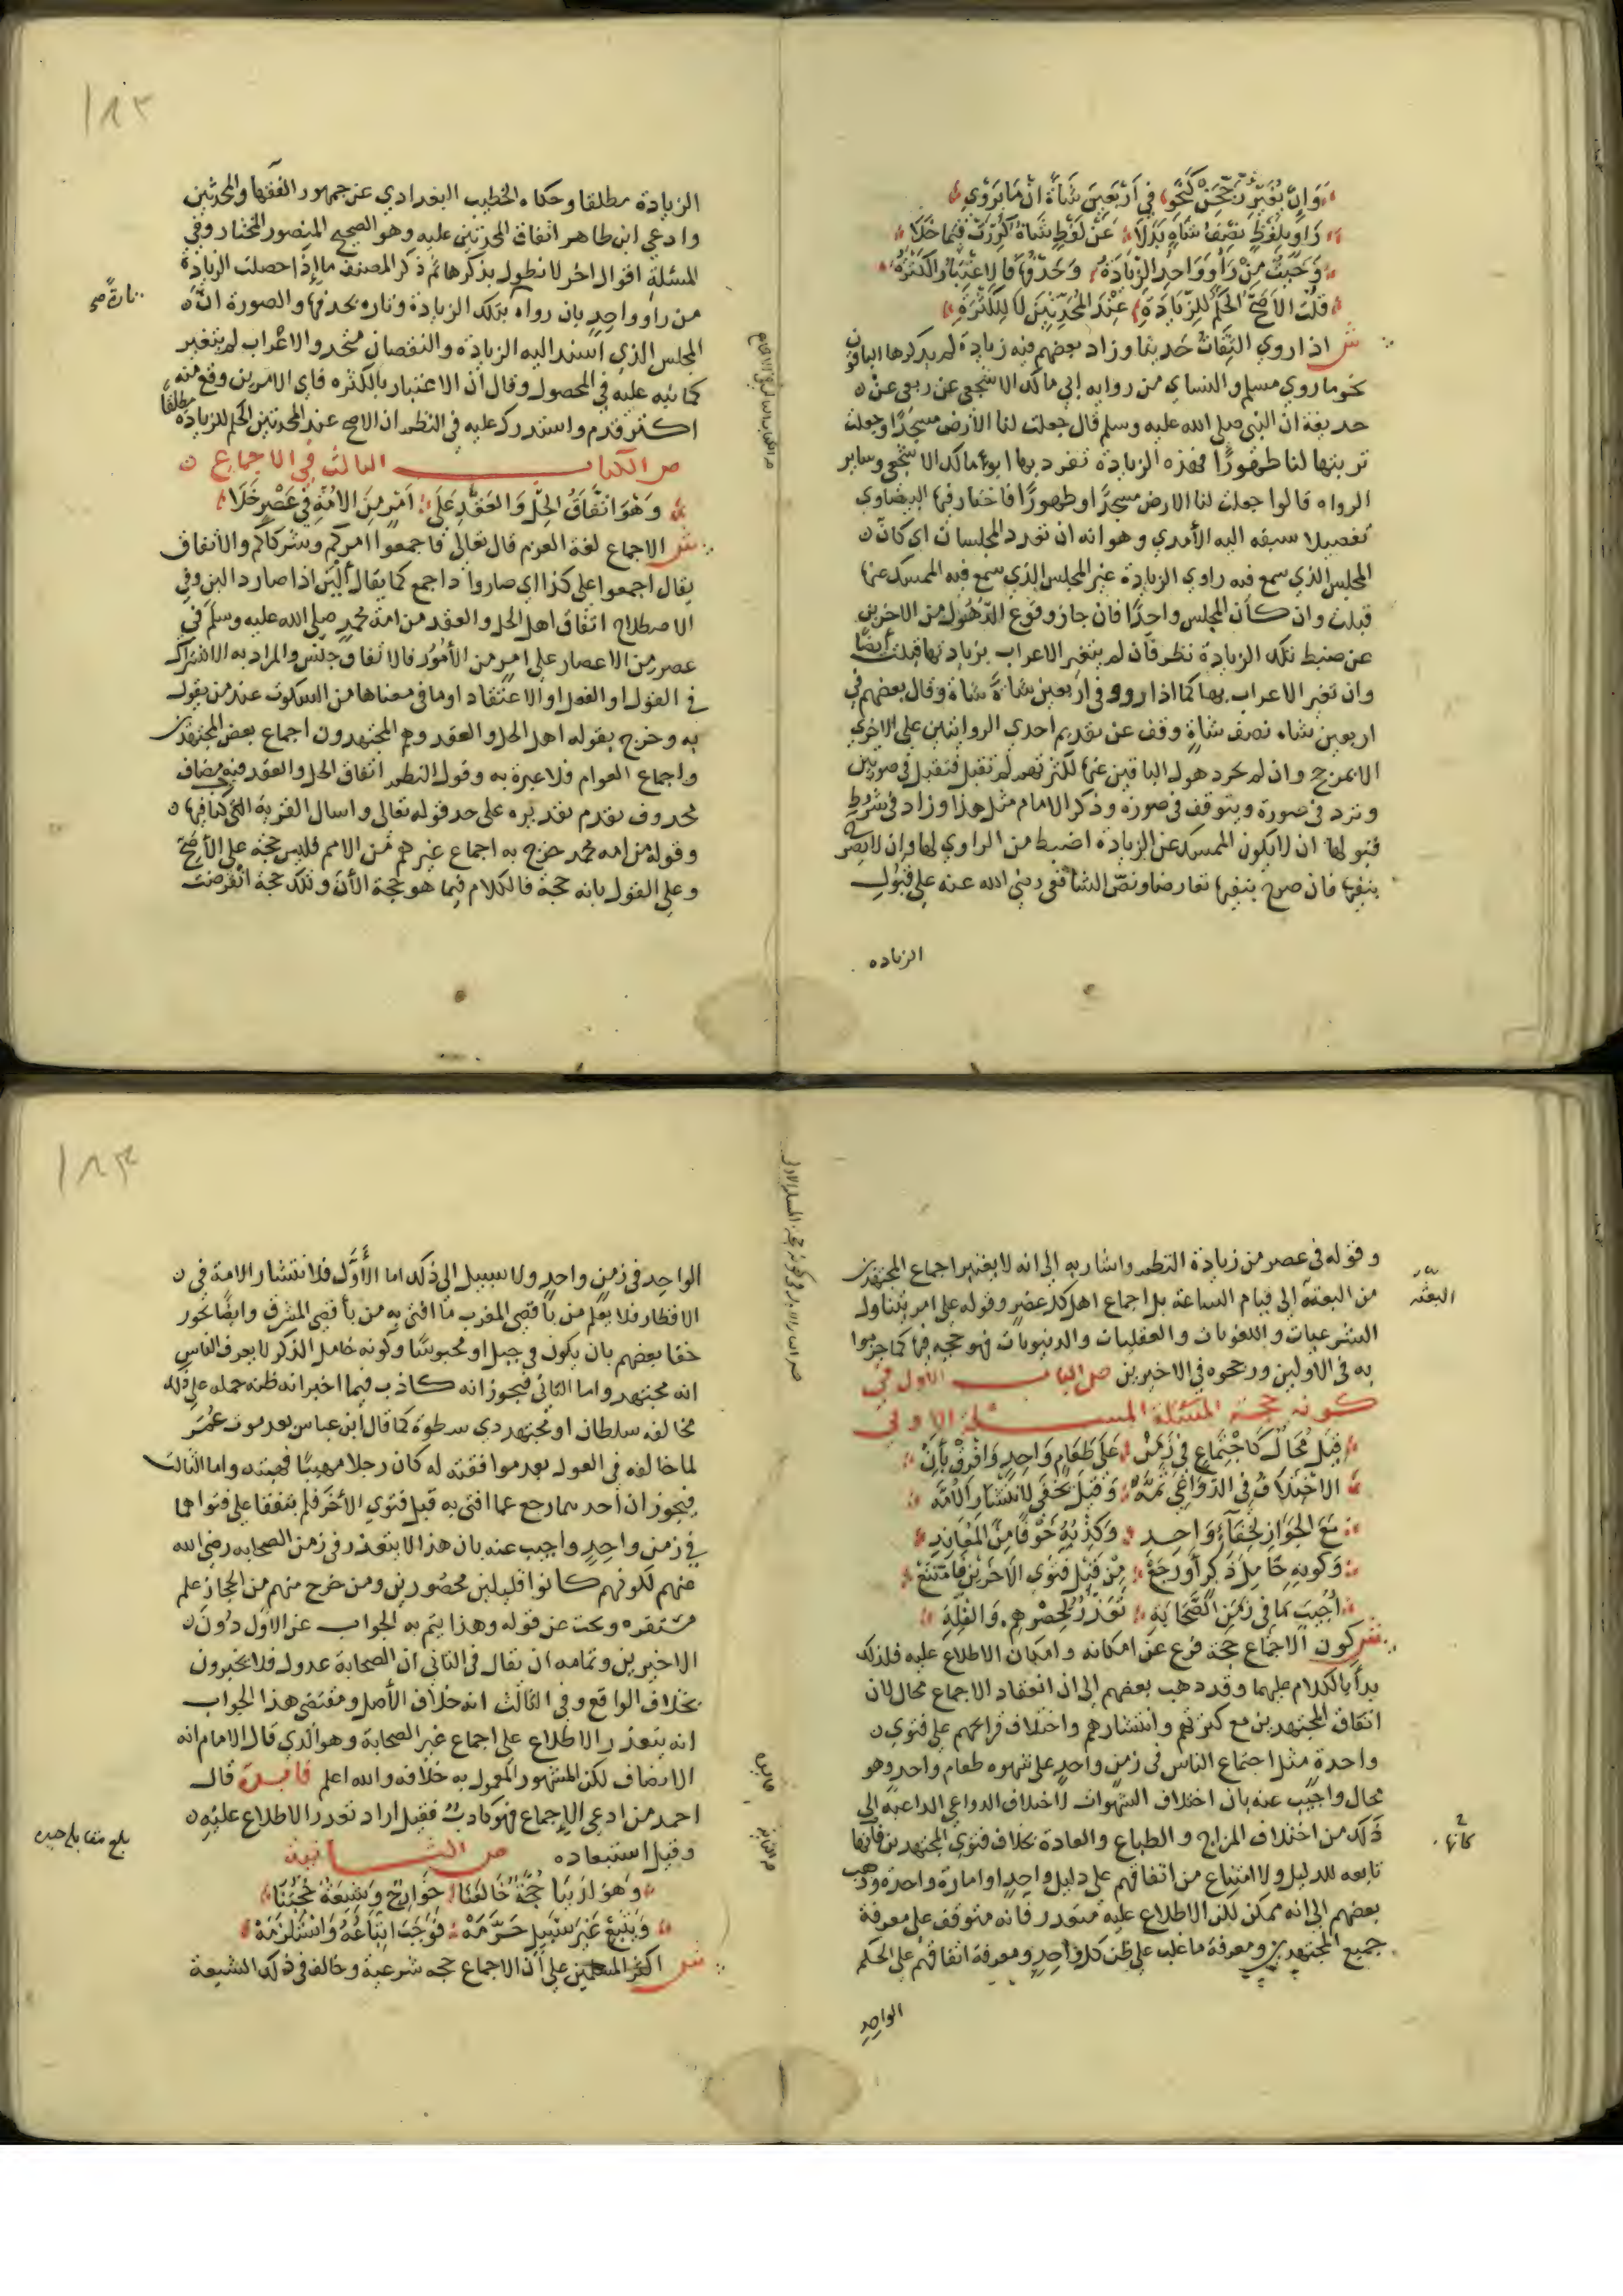 وان يغير نحو في اربعين شاة ان ما يروي
راو بلفظ نصف شاة بدلا عن لفظ شاة فيما خلا
وحيث من راو واحد الزيادة وحذفها فالاعتبار الكثرة
قلت الاصح الحكم للزيادة عند المحدثين لا للكثرة
ش اذا روي الثقات حديثا وزاد بعضهم فيه زيادة لم يذكرها الباقون
نحو ما روي مسلم والنساي من رواية ابي مالك الاشجعي عن ربعي عن
حذيفة ان النبي صلى الله عليه وسلم قال جعلت لنا الأرض مسجدا وجعلت
تربتها لنا طهورا فهذه الزيادة تفرد بها ابو مالك الاشجعي وساير
الرواه قالوا جعلت لنا الارض مسجدا وطهورا فاختار فيها البيضاوي
تفصيلا سبقه اليه الأمدي وهو انه ان تعدد المجلسان اي كان
المجلس الذي سمع فيه راوي الزيادة غير المجلس الذي سمع فيه الممسك عنها
قبلت وان كان المجلس واحدا فان جاز وقوع الذهول من الاخرين
عن ضبط تلك الزيادة نظر فان لم يتغير الاعراب بزيادتها قبلت أيضا
وان تغير الاعراب بها كما اذا رووا في اربعين شاة شاة وقال بعضهم في
اربعين شاه نصف شاة وقف عن تقديم احدي الروايتين على الاخري
الا بمرجح وان لم يجز ذهول الباقين عنها لكثرتهم لم تقبل فتقبل في صورتين
وترد في صورة ويتوقف في صورة وذكر الامام مثل هذا وزاد في شروط
قبولها ان لا يكون الممسك عن الزيادة اضبط من الراوي لها وان لا يصرح
بنفيها فان صرح بنفيها تعارضا ونص الشافعي رضي الله عنه على قبول
الزياده
١٨٢
الزيادة مطلقا وحكاه الخطيب البغدادي عن جمهور الفقها والمحدثين
وادعي ابن طاهر اتفاق المحدثين عليه وهو الصحيح المنصور المختار وفي
المسئلة اقوال اخر لا نطول بذكرها ثم ذكر المصنف ما إذا حصلت الزيادة
من راو واحد بان رواه بتلك الزيادة وتاره بحذفها والصورة ان
تارة صح
المجلس الذي أسند اليه الزيادة والنقصان متحد والاعراب لم يتغير
كما نبه عليه في المحصول وقال ان الاعتبار بالكثره فاي الامرين وقع منه
اكثر قدم واستدرك عليه في النظم ان الاصح عند المحدثين الحكم للزيادة مطلقا
ص الكتاب الثالث في الاجماع
وهو اتفاق الحل والعقد على امر من الامة في عصر خلا
ش الاجماع لغة العزم قال تعالى فاجمعوا امركم وشركاكم والاتفاق
يقال اجمعوا على كذا اي صاروا ذا جمع كما يقال ألبن اذا صار ذا لبن وفي
الاصطلاح اتفاق اهل الحل والعقد من امة محمد صلى الله عليه وسلم في
عصر من الاعصار على امر من الأمور فالاتفاق جنس والمراد به الاشتراك
في القول او الفعل او الاعتقاد او ما في معناها من السكوت عند من يقول
به وخرج بقوله اهل الحل والعقد وهم المجتهدون اجماع بعض المجتهدين
واجماع العوام فلا عبرة به وقول النظم اتفاق الحل والعقد فيه مضاف
محذوف تقدم تقديره على حد قوله تعالى واسال القرية التي كنا فيها
وقوله من امه محمد خرج به اجماع غيرهم من الامم فليس حجة على الأصح
وعلي القول بانه حجة فالكلام فيما هو حجة الأن وتلك حجة انقرضت
وقوله في عصر من زيادة النظم واشار به إلى انه لا يعتبر اجماع المجتهدين
من البعثة إلى قيام الساعة بل اجماع اهل كل عصر وقوله على امر يتناول
البعثة
الشرعيات واللغويات والعقليات والدنيويات فهو حجه فيها كما جزموا
به في الاولين ورجحوه في الاخيرين ص الباب الاول في
كونه حجة المسئلة الاولى
قيل محال كاجتماع في زمن على طعام واحد وافرق بأن
الاختلاف في الدواعي ثمه وقيل يخفي لانتشار الأمة
مع الجواز لخفاء واحد وكذبه خوفا من المعاند
وكونه خامل ذكر أو رجع من قبل فتوى الاخرين فامتنع
اجيب ما في زمن الصحابة تعذر لحصرهم والقلة
ش كون الاجماع حجة فرع عن امكانه وامكان الاطلاع عليه فلذلك
بدأ بالكلام عليهما وقد ذهب بعضهم إلى ان انعقاد الاجماع محال لان
اتفاق المجتهدين مع كثرتهم وانتشارهم واختلاف قرائحهم على فتوي
واحدة مثل اجتماع الناس في زمن واحد على شهوه طعام واحد وهو
محال واجيب عنه بان اختلاف الشهوات لاختلاف الدواعي الداعية إلى
ذلك من اختلاف المزاج والطباع والعادة بخلاف فتوي المجتهدين فانها
كانها
تابعه للدليل ولا امتناع من اتفاقهم على دليل واحد او امارة واحدة وذهب
بعضهم الى انه ممكن لكن الاطلاع عليه متعذر فانه متوقف على معرفة
جميع المجتهدين ومعرفة ما غلب على ظن كل واحد ومعرفة اتفاقهم على الحكم
الواحد
١٨٣
الواحد في زمن واحد ولا سبيل الى ذلك اما الأول فلانتشار الامة في
الاقطار فلا يعلم من بأقصي المغرب ما افتى به من بأقصي المشرق وايضا يجوز
خفا بعضهم بان يكون في جبل او محبوسا وكونه خامل الذكر لا يعرف الناس
انه مجتهد واما الثاني فيجوز انه كاذب فيما اخبر انه ظنه حمله على ذلك
مخالفه سلطان او مجتهد ذي سطوة كما قال ابن عباس بعد موت عمر
لما خالفه في العول بعد موافقته له كان رجلا مهيبا فهبته واما الثالث
فيجوز ان احدهما رجع عما افتى به قبل فتوي الأخر فلم يتفقا على فتواهما
في زمن واحد واجيب عنه بان هذا لا يتعذر في زمن الصحابه رضي الله
عنهم لكونهم كانوا قليلين محصورين ومن خرج منهم من الحجاز علم
مستقره وبحث عن قوله وهذا يتم به الجواب عن الاول دون
الاخيرين وتمامه ان يقال في الثاني ان الصحابة عدول فلا يخبرون
بخلاف الواقع وفي الثالث انه خلاف الأصل ومقتضى هذا الجواب
انه يتعذر الاطلاع على اجماع غير الصحابة وهو الذي قال الامام انه
الانصاف لكن المشهور المعمول به خلافه والله اعلم فايدة قال
احمد من ادعى الإجماع فهو كاذب فقيل اراد تعذر الاطلاع عليه
وقيل استبعاده ص الثانية
بلغ مقابلة
وهو ازبنا حجة خالفنا خوارج وشيعة
ويتبع غير سبيل حرمه فوجب اتباعه واستلزمه
ش اكثر المسلمين على أن الاجماع حجه شرعية وخالف في ذلك الشيعة